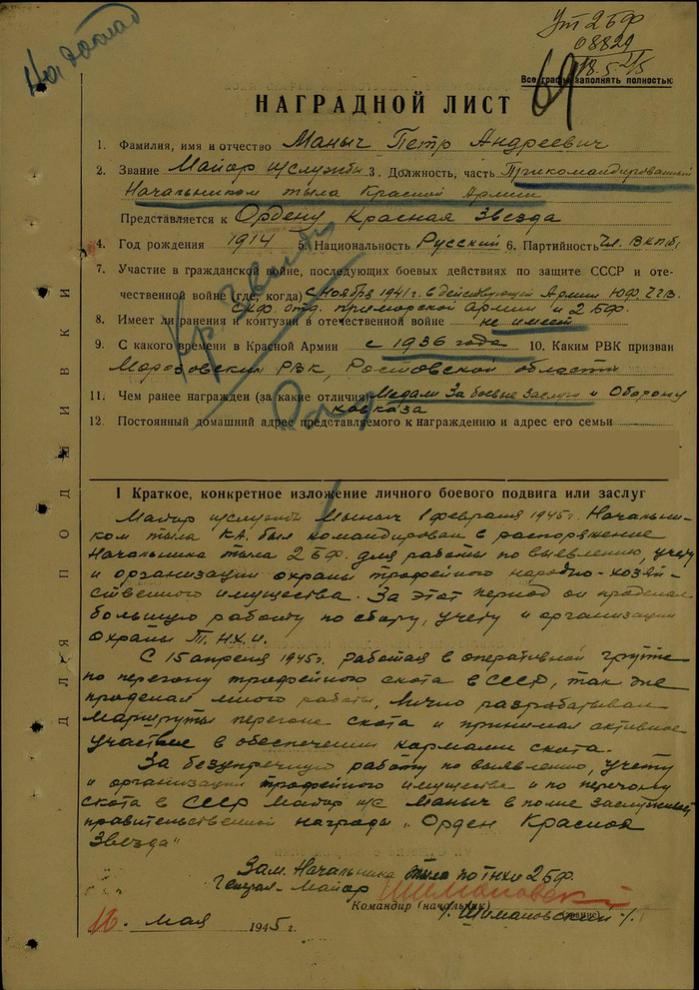 На доклад
Уп 2БФ
08829
18.5
69
Все графы заполнять полностью
НАГРАДНОЙ ЛИСТ
1. Фамилия, имя и отчество Маныч Петр Андреевич
2. Звание Майор и/службы 3. Должность, часть Прикомандированный
Начальником тыла Красной Армии
Представляется к Ордену Красная Звезда
4. Год рождения 1914 5. Национальность Русский 6. Партийность Чл. ВКП(б)
7. Участие в гражданской войне, последующих боевых действиях по защите СССР и оте-
чественной войне (где, когда) с Ноября 1941 г. в действующей Армии ЮФ, ЧГВ.
СКФ. отд. приморской Армии и 2 БФ.
8. Имеет ли ранения и контузии в отечественной войне не имеет
9. С какого времени в Красной Армии с 1936 года 10. Каким РВК призван
Морозовским РВК, Ростовской области
11. Чем ранее награжден (за какие отличия) Медали За боевые заслуги и Оборону
кавказа
12. Постоянный домашний адрес представляемого к награждению и адрес его семьи
Кр. Звезды
I Краткое, конкретное изложение личного боевого подвига или заслуг
Майор и/службы Маныч 1 февраля 1945 г. Начальни-
ком тыла КА. был командирован в распоряжение
Начальника тыла 2 БФ. для работы по выявлению, учету
и организации охраны трофейного народно-хозяй-
ственного имущества. За этот период он проделал
большую работу по сбору, учету и организации
охраны Т.Н.Х.И.
С 15 апреля 1945 г. работая в оперативной группе
по перегону трофейного скота в СССР, так же
проделал много работы, лично разрабатывал
маршруты перегона скота и принимал активное
участие в обеспечении кормами скота.
За безупречную работу по выявлению, учету
и организации трофейного имущества и по перегону
скота в СССР Майор и/с Маныч вполне заслуживает
правительственной награды „Орден Красная
Звезда"
Зам. Начальника тыла по ТНХИ 2 БФ.
Генерал-Майор Шимановский
Командир (начальник) /. Шимановский ./.
(звание)
16. мая 1945 г.
ДЛЯ ПОДШИВКИ